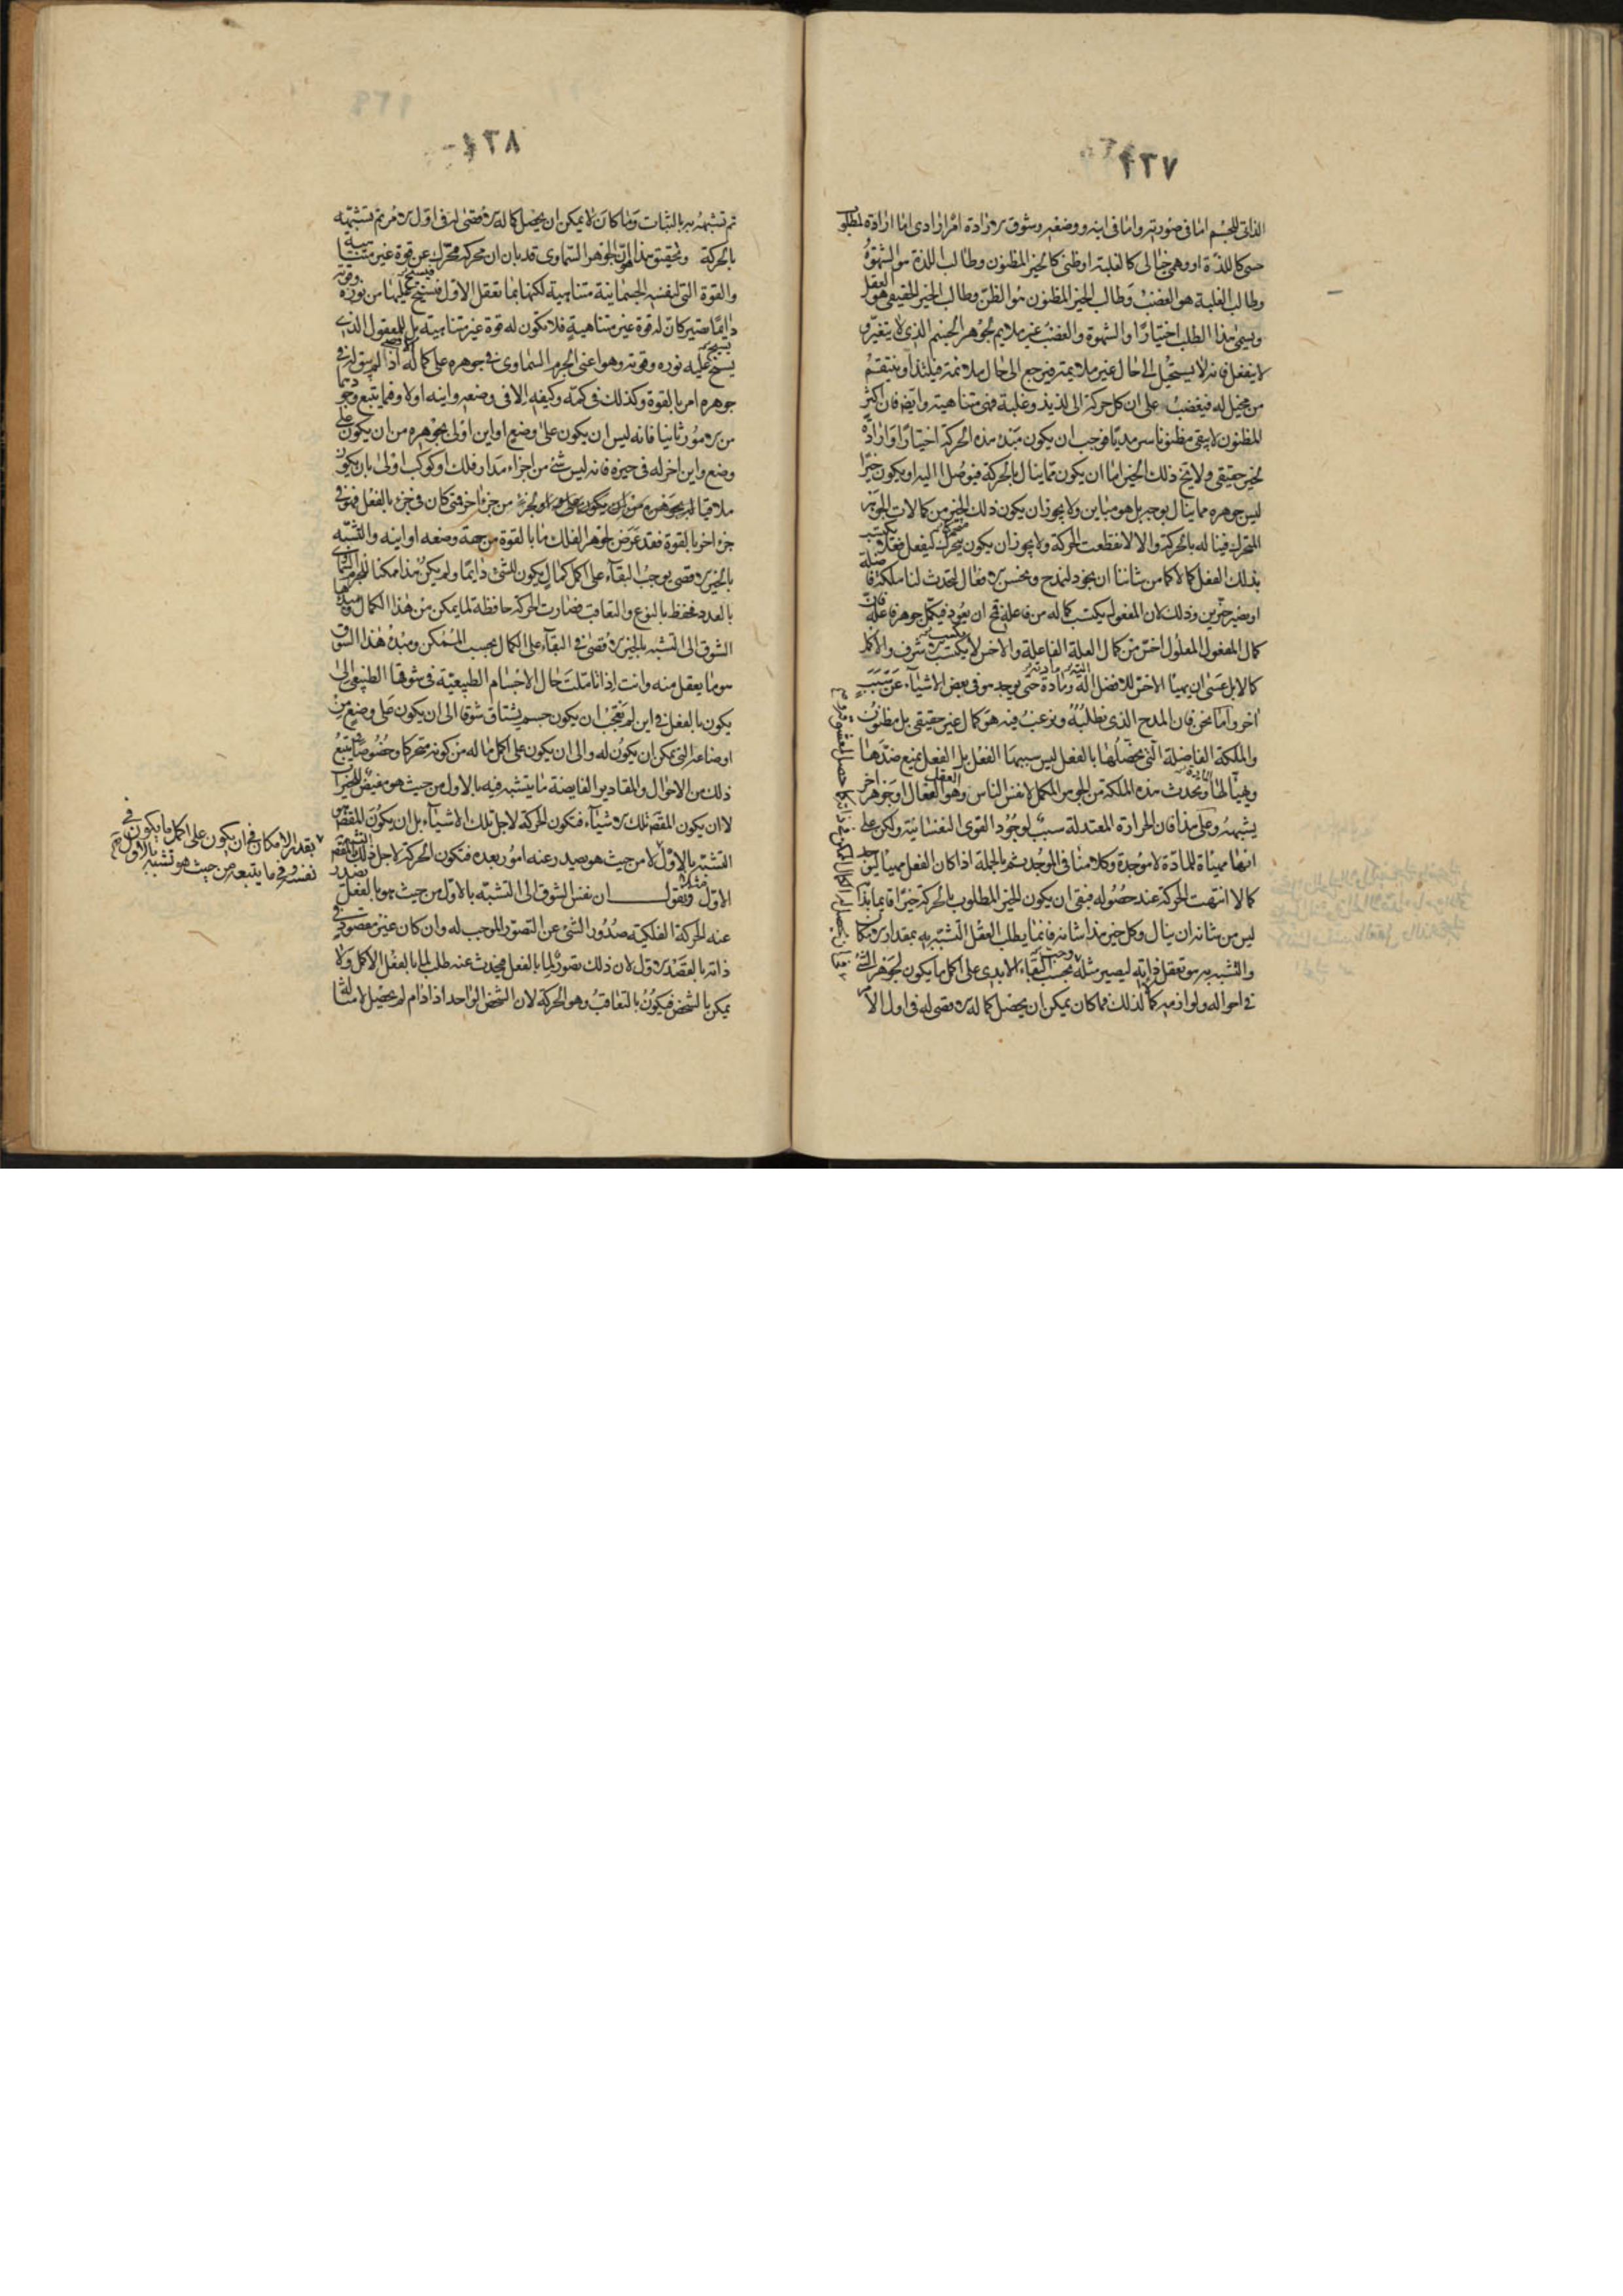 ٢٣٧
الذاتى للجسم اما فى صورته واما فى اينه ووضعه وشوق الارادة امر ارادى اما ارادة لمطلوب
حسى كاللذة او وهمى خيالى كالغلبة او ظنى كالخير المظنون وطالب اللذة هو الشهوة
وطالب الغلبة هو الغضب وطالب الخير المظنون هو الظن وطالب الخير الحقيقى هو العقل
ويسمى هذا الطلب اختيارا والشهوة والغضب غير ملايم لجوهر الجسم الذى لا يتغير و
لا ينفعل فانه لا يستحيل الى حال غير ملايمة فيرجع الى حال ملايمة فيلتذ او ينتقم
من مخيل له فيغضب على ان كل حركة الى لذيذ وغلبة فهى متناهية وايضا فان اكثر
المظنون لا يبقى مظنونا سرمديا فوجب ان يكون مبدء هذه الحركة اختيارا وارادة
لخير حقيقى ولا يخ ذلك الخير اما ان يكون مما ينال بالحركة فيوصل اليه او يكون خيرا
ليس جوهره مما ينال بوجه بل هو مباين ولا يجوز ان يكون ذلك الخير من كمالات الجوهر
المتحرك فيناله بالحركة والا لانقطعت الحركة ولا يجوز ان يكون يتحرك ليفعل فعلا يكتسب
بذلك الفعل كمالا كما من شاننا ان نجود لنمدح ونحسن الافعال لتحدث لنا ملكة فاضلة
او نصير خيرين وذلك لان المفعول يكتسب كماله من فاعله فمح ان يعود فيكمل جوهر فاعله فان
كمال المفعول المعلول اخس من كمال العلة الفاعلة والاخس لا يكسب الاشرف والاكمل
كمالا بل عسى ان يهيأ الاخس للافضل آلته ومادته حتى يوجد هو فى بعض الاشياء عن سبب
اخر واما نحن فان المدح الذى نطلبه ونرغب فيه هو كمال غير حقيقى بل مظنون
والملكة الفاضلة التى نحصلها بالفعل ليس سببها الفعل بل الفعل يمنع ضدها
ويهيأ لها وتحدث هذه الملكة من الجوهر المكمل لانفس الناس وهو العقل الفعال او جوهر اخر
يشبهه وعلى هذا فان الحرارة المعتدلة سبب لوجود القوى النفسانية ولكن على
انها مهيأة للمادة لا موجدة وكلامنا فى الموجد ثم بالجملة اذا كان الفعل مهيئا ليوجد
كمالا انتهت الحركة عند حصوله فبقى ان يكون الخير المطلوب بالحركة خيرا قائما بذاته
ليس من شانه ان ينال وكل خير هذا شانه فانما يطلب العقل التشبه به بمقدار الامكان
والتشبه به هو تعقل ذاته ليصير مثله بحسب البقاء الابدى على اكمل ما يكون لجوهر الشئ
فى احواله ولوازمه كمالذلك فما كان يمكن ان يحصل كماله الاقصى له فى اول الامر
٢٣٨
تم تشبهه به بالثبات وما كان لا يمكن ان يحصل كماله الاقصى له فى اول الامر تم تشبهه
بالحركة وتحقيق هذا ان الجوهر السماوى قد بان ان محركه محرك عن قوة غير متناهية
والقوة التى لنفسه الجسمانية متناهية لكنها بما تعقل الاول فيسنح عليها من نوره وقوته
دائما تصير كان له قوة غير متناهية فلا تكون له قوة غير متناهية بل للمعقول الذى
يسنح عليه نوره وقوته وهو اعنى الجرم السماوى فى جوهره على كماله الاقصى اذا لم يبق له فى
جوهره امر بالقوة وكذلك فى كمه وكيفه الا فى وضعه واينه اولا وفيما يتبع وجودهما
من الامور ثانيا فانه ليس ان يكون على وضع او اين اولى بجوهره من ان يكون على
وضع واين اخر له فى حيزه فانه ليس شئ من اجزاء مدار فلك او كوكب اولى بان يكون
ملاقيا له بجزء من جزء اخر فمتى كان فى جزء بالفعل فهو فى
جزء اخر بالقوة فقد عرض لجوهر الفلك ما بالقوة من جهة وضعه او اينه والتشبه
بالخير الاقصى يوجب البقاء على اكمل كمال يكون للشئ دائما ولم يكن هذا ممكنا للجرم السماوى
بالعدد فحفظ بالنوع والتعاقب فصارت الحركة حافظة لما يمكن من هذا الكمال ومبدؤها
الشوق الى التشبه بالخير الاقصى فى البقاء على الكمال بحسب الممكن ومبدء هذا الشوق
هو ما يعقل منه وانت اذا تاملت حال الاجسام الطبيعية فى شوقها الطبيعى الى ان
يكون بالفعل فى اين لم تعجب ان يكون جسم يشتاق شوقا الى ان يكون على وضع من
اوضاعه التى يمكن ان يكون له والى ان يكون على اكمل ما له من كونه متحركا وخصوصا يتبع
ذلك من الاحوال والمقادير الفايضة ما يتشبه فيه بالاول من حيث هو مفيض للخيرات
لا ان يكون المقصد تلك الاشياء فتكون الحركة لاجل تلك الاشياء بل ان يكون المقصد هو
التشبه بالاول لا من حيث هو يصدر عنه امور بعده فتكون الحركة لاجل ذلك المقصد
الاول ونقول ان نفس الشوق الى التشبه بالاول من حيث هو بالفعل تصدر
عنه الحركة الفلكية صدور الشئ عن التصور الموجب له وان كان غير مقصود فى
ذاته بالقصد الاول لان ذلك تصور لما بالفعل فيحدث عنه طلب لما بالفعل الاكمل ولا
يمكن بالشخص فيكون بالتعاقب وهو الحركة لان الشخص الواحد اذا دام لم يحصل لامثاله
بقدر الامكان فى ان يكون على اكمل ما يكون فى
نفسه وفى ما يتبعه من حيث هو تشبه بالاول